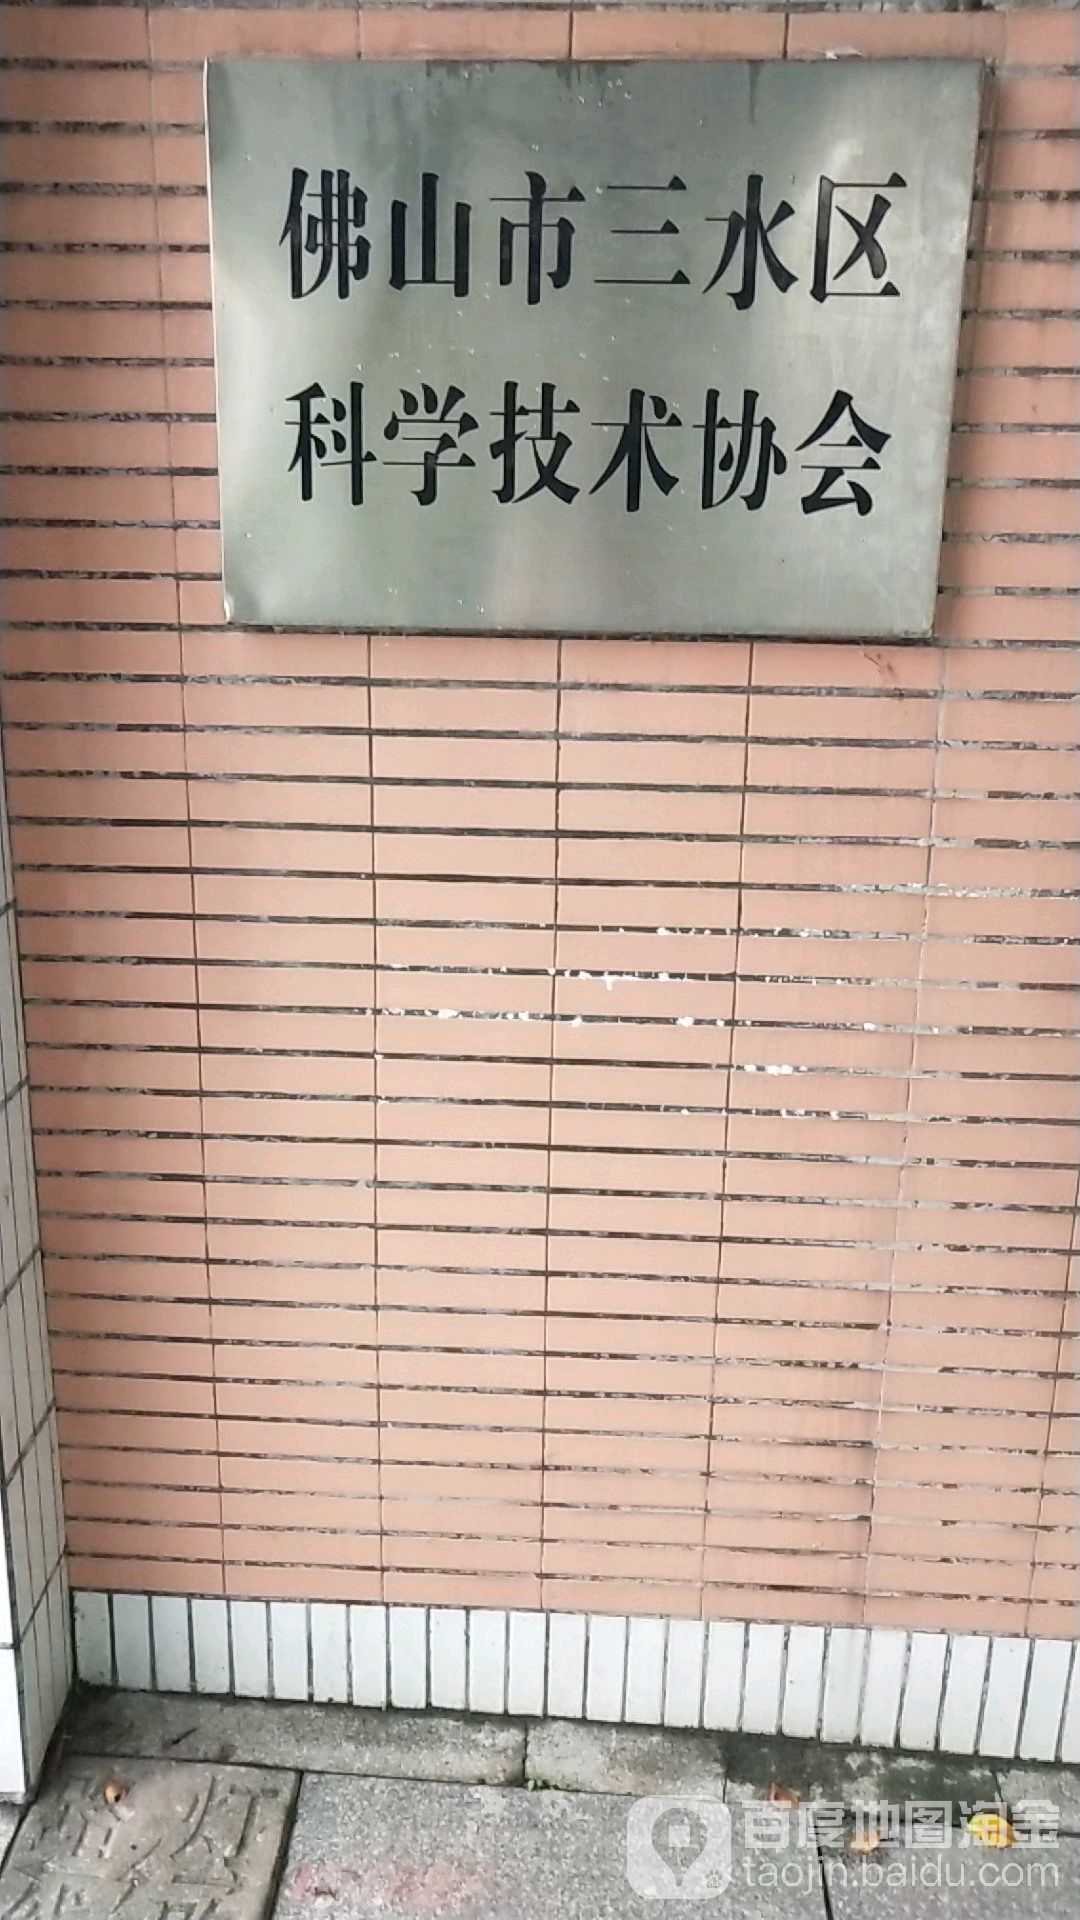 佛山市三水区
科学技术协会
百度地图淘金
taojin.baidu.com